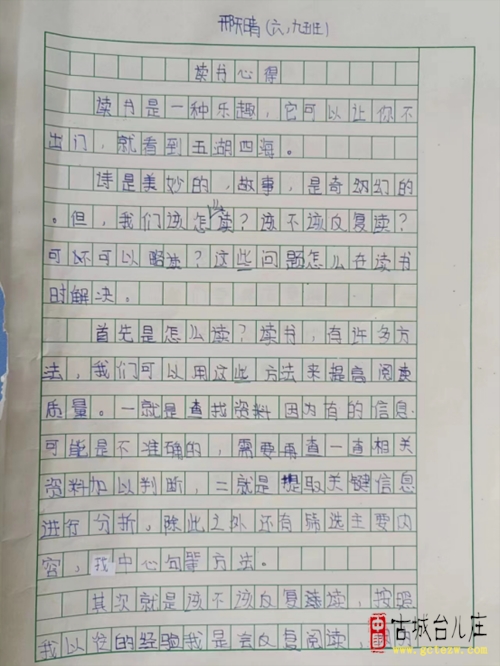 邢天晴(六、九班)
读书心得
读书是一种乐趣，它可以让你不
出门，就看到五湖四海。
诗是美妙的，故事，是奇幻的
。但，我们该怎么读？该不该反复读？
可不可以略读？这些问题怎么在读书
时解决。
首先是怎么读？读书，有许多方
法，我们可以用这些方法来提高阅读
质量。一就是查找资料因为有的信息
可能是不准确的，需要再查一查相关
资料加以判断，二就是提取关键信息
进行分析，除此之外还有筛选主要内
容，找中心句等方法。
其次就是该不该反复读，按照
我以往的经验我是会反复阅读
古城台儿庄
www.gctezw.com